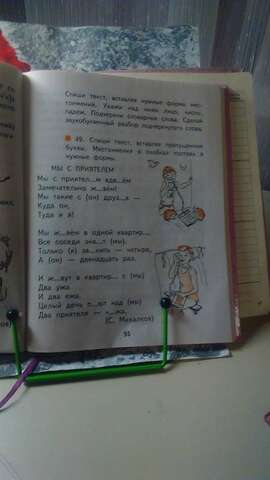 Спиши текст, вставляя нужные формы мес-
тоимений. Укажи над ними лицо, число,
падеж. Подчеркни словарные слова. Сделай
звукобуквенный разбор подчеркнутого слова.
49. Спиши текст, вставляя пропущенные
буквы. Местоимения в скобках поставь в
нужные формы.
МЫ С ПРИЯТЕЛЕМ
Мы с приятел...м вдв...ём
Замечательно ж...вём!
Мы такие с (он) друз...я —
Куда он,
Туда и я!
Мы ж...вём в одной квартир...,
Все соседи зна...т (мы).
Только (я) зв...нить — четыре,
А (он) — двенадцать раз.
И ж...вут в квартир... с (мы)
Два ужа
И два ежа,
Целый день п...ют над (мы)
Два приятеля — ч...жа.
(С. Михалков)
95